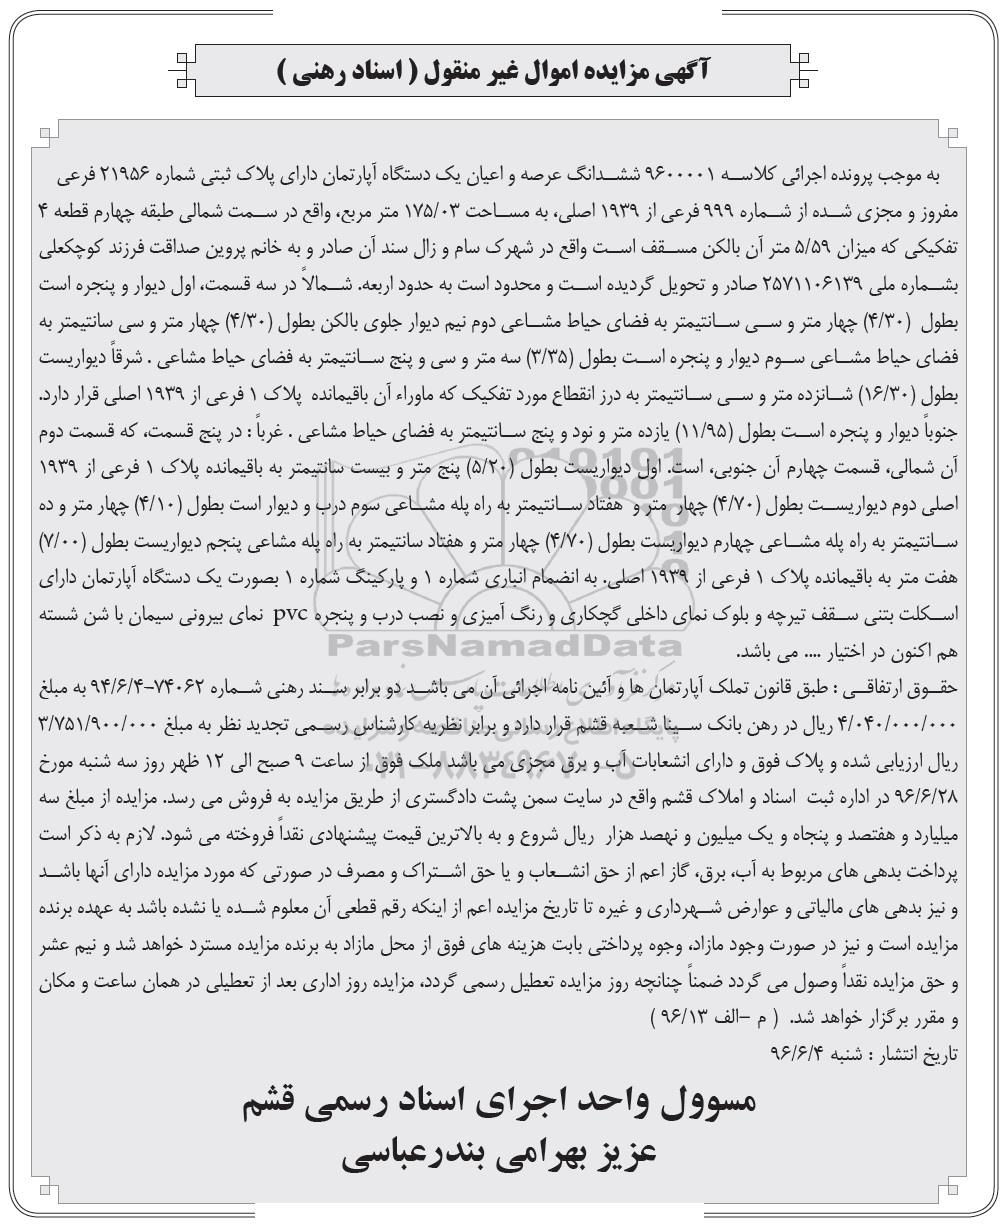 آگهی مزایده اموال غیر منقول ( اسناد رهنی )
به موجب پرونده اجرائی کلاسه ۹۶۰۰۰۰۱ ششدانگ عرصه و اعیان یک دستگاه آپارتمان دارای پلاک ثبتی شماره ۲۱۹۵۶ فرعی
مفروز و مجزی شده از شماره ۹۹۹ فرعی از ۱۹۳۹ اصلی، به مساحت ۱۷۵/۰۳ متر مربع، واقع در سمت شمالی طبقه چهارم قطعه ۴
تفکیکی که میزان ۵/۵۹ متر آن بالکن مسقف است واقع در شهرک سام و زال سند آن صادر و به خانم پروین صداقت فرزند کوچکعلی
بشماره ملی ۲۵۷۱۱۰۶۱۳۹ صادر و تحویل گردیده است و محدود است به حدود اربعه. شمالاً در سه قسمت، اول دیوار و پنجره است
بطول (۴/۳۰) چهار متر و سی سانتیمتر به فضای حیاط مشاعی دوم نیم دیوار جلوی بالکن بطول (۴/۳۰) چهار متر و سی سانتیمتر به
فضای حیاط مشاعی سوم دیوار و پنجره است بطول (۳/۳۵) سه متر و سی و پنج سانتیمتر به فضای حیاط مشاعی . شرقاً دیواریست
بطول (۱۶/۳۰) شانزده متر و سی سانتیمتر به درز انقطاع مورد تفکیک که ماوراء آن باقیمانده پلاک ۱ فرعی از ۱۹۳۹ اصلی قرار دارد.
جنوباً دیوار و پنجره است بطول (۱۱/۹۵) یازده متر و نود و پنج سانتیمتر به فضای حیاط مشاعی . غرباً : در پنج قسمت، که قسمت دوم
آن شمالی، قسمت چهارم آن جنوبی، است. اول دیواریست بطول (۵/۲۰) پنج متر و بیست سانتیمتر به باقیمانده پلاک ۱ فرعی از ۱۹۳۹
اصلی دوم دیواریست بطول (۴/۷۰) چهار متر و هفتاد سانتیمتر به راه پله مشاعی سوم درب و دیوار است بطول (۴/۱۰) چهار متر و ده
سانتیمتر به راه پله مشاعی چهارم دیواریست بطول (۴/۷۰) چهار متر و هفتاد سانتیمتر به راه پله مشاعی پنجم دیواریست بطول (۷/۰۰)
هفت متر به باقیمانده پلاک ۱ فرعی از ۱۹۳۹ اصلی. به انضمام انباری شماره ۱ و پارکینگ شماره ۱ بصورت یک دستگاه آپارتمان دارای
اسکلت بتنی سقف تیرچه و بلوک نمای داخلی گچکاری و رنگ آمیزی و نصب درب و پنجره pvc نمای بیرونی سیمان با شن شسته
هم اکنون در اختیار .... می باشد.
حقوق ارتفاقی : طبق قانون تملک آپارتمان ها و آئین نامه اجرائی آن می باشد دو برابر سند رهنی شماره ۷۴۰۶۲-۹۴/۶/۴ به مبلغ
۴/۰۴۰/۰۰۰/۰۰۰ ریال در رهن بانک سینا شعبه قشم قرار دارد و برابر نظریه کارشناس رسمی تجدید نظر به مبلغ ۳/۷۵۱/۹۰۰/۰۰۰
ریال ارزیابی شده و پلاک فوق و دارای انشعابات آب و برق مجزی می باشد ملک فوق از ساعت ۹ صبح الی ۱۲ ظهر روز سه شنبه مورخ
۹۶/۶/۲۸ در اداره ثبت اسناد و املاک قشم واقع در سایت سمن پشت دادگستری از طریق مزایده به فروش می رسد. مزایده از مبلغ سه
میلیارد و هفتصد و پنجاه و یک میلیون و نهصد هزار ریال شروع و به بالاترین قیمت پیشنهادی نقداً فروخته می شود. لازم به ذکر است
پرداخت بدهی های مربوط به آب، برق، گاز اعم از حق انشعاب و یا حق اشتراک و مصرف در صورتی که مورد مزایده دارای آنها باشد
و نیز بدهی های مالیاتی و عوارض شهرداری و غیره تا تاریخ مزایده اعم از اینکه رقم قطعی آن معلوم شده یا نشده باشد به عهده برنده
مزایده است و نیز در صورت وجود مازاد، وجوه پرداختی بابت هزینه های فوق از محل مازاد به برنده مزایده مسترد خواهد شد و نیم عشر
و حق مزایده نقداً وصول می گردد ضمناً چنانچه روز مزایده تعطیل رسمی گردد، مزایده روز اداری بعد از تعطیلی در همان ساعت و مکان
و مقرر برگزار خواهد شد. ( م -الف ۹۶/۱۳ )
تاریخ انتشار : شنبه ۹۶/۶/۴
مسوول واحد اجرای اسناد رسمی قشم
عزیز بهرامی بندرعباسی
ParsNamadData
پایگاه اطلاع رسانی مناقصه و مزایده
۰۲۱-۸۸۳۴۹۶۷۰-۵